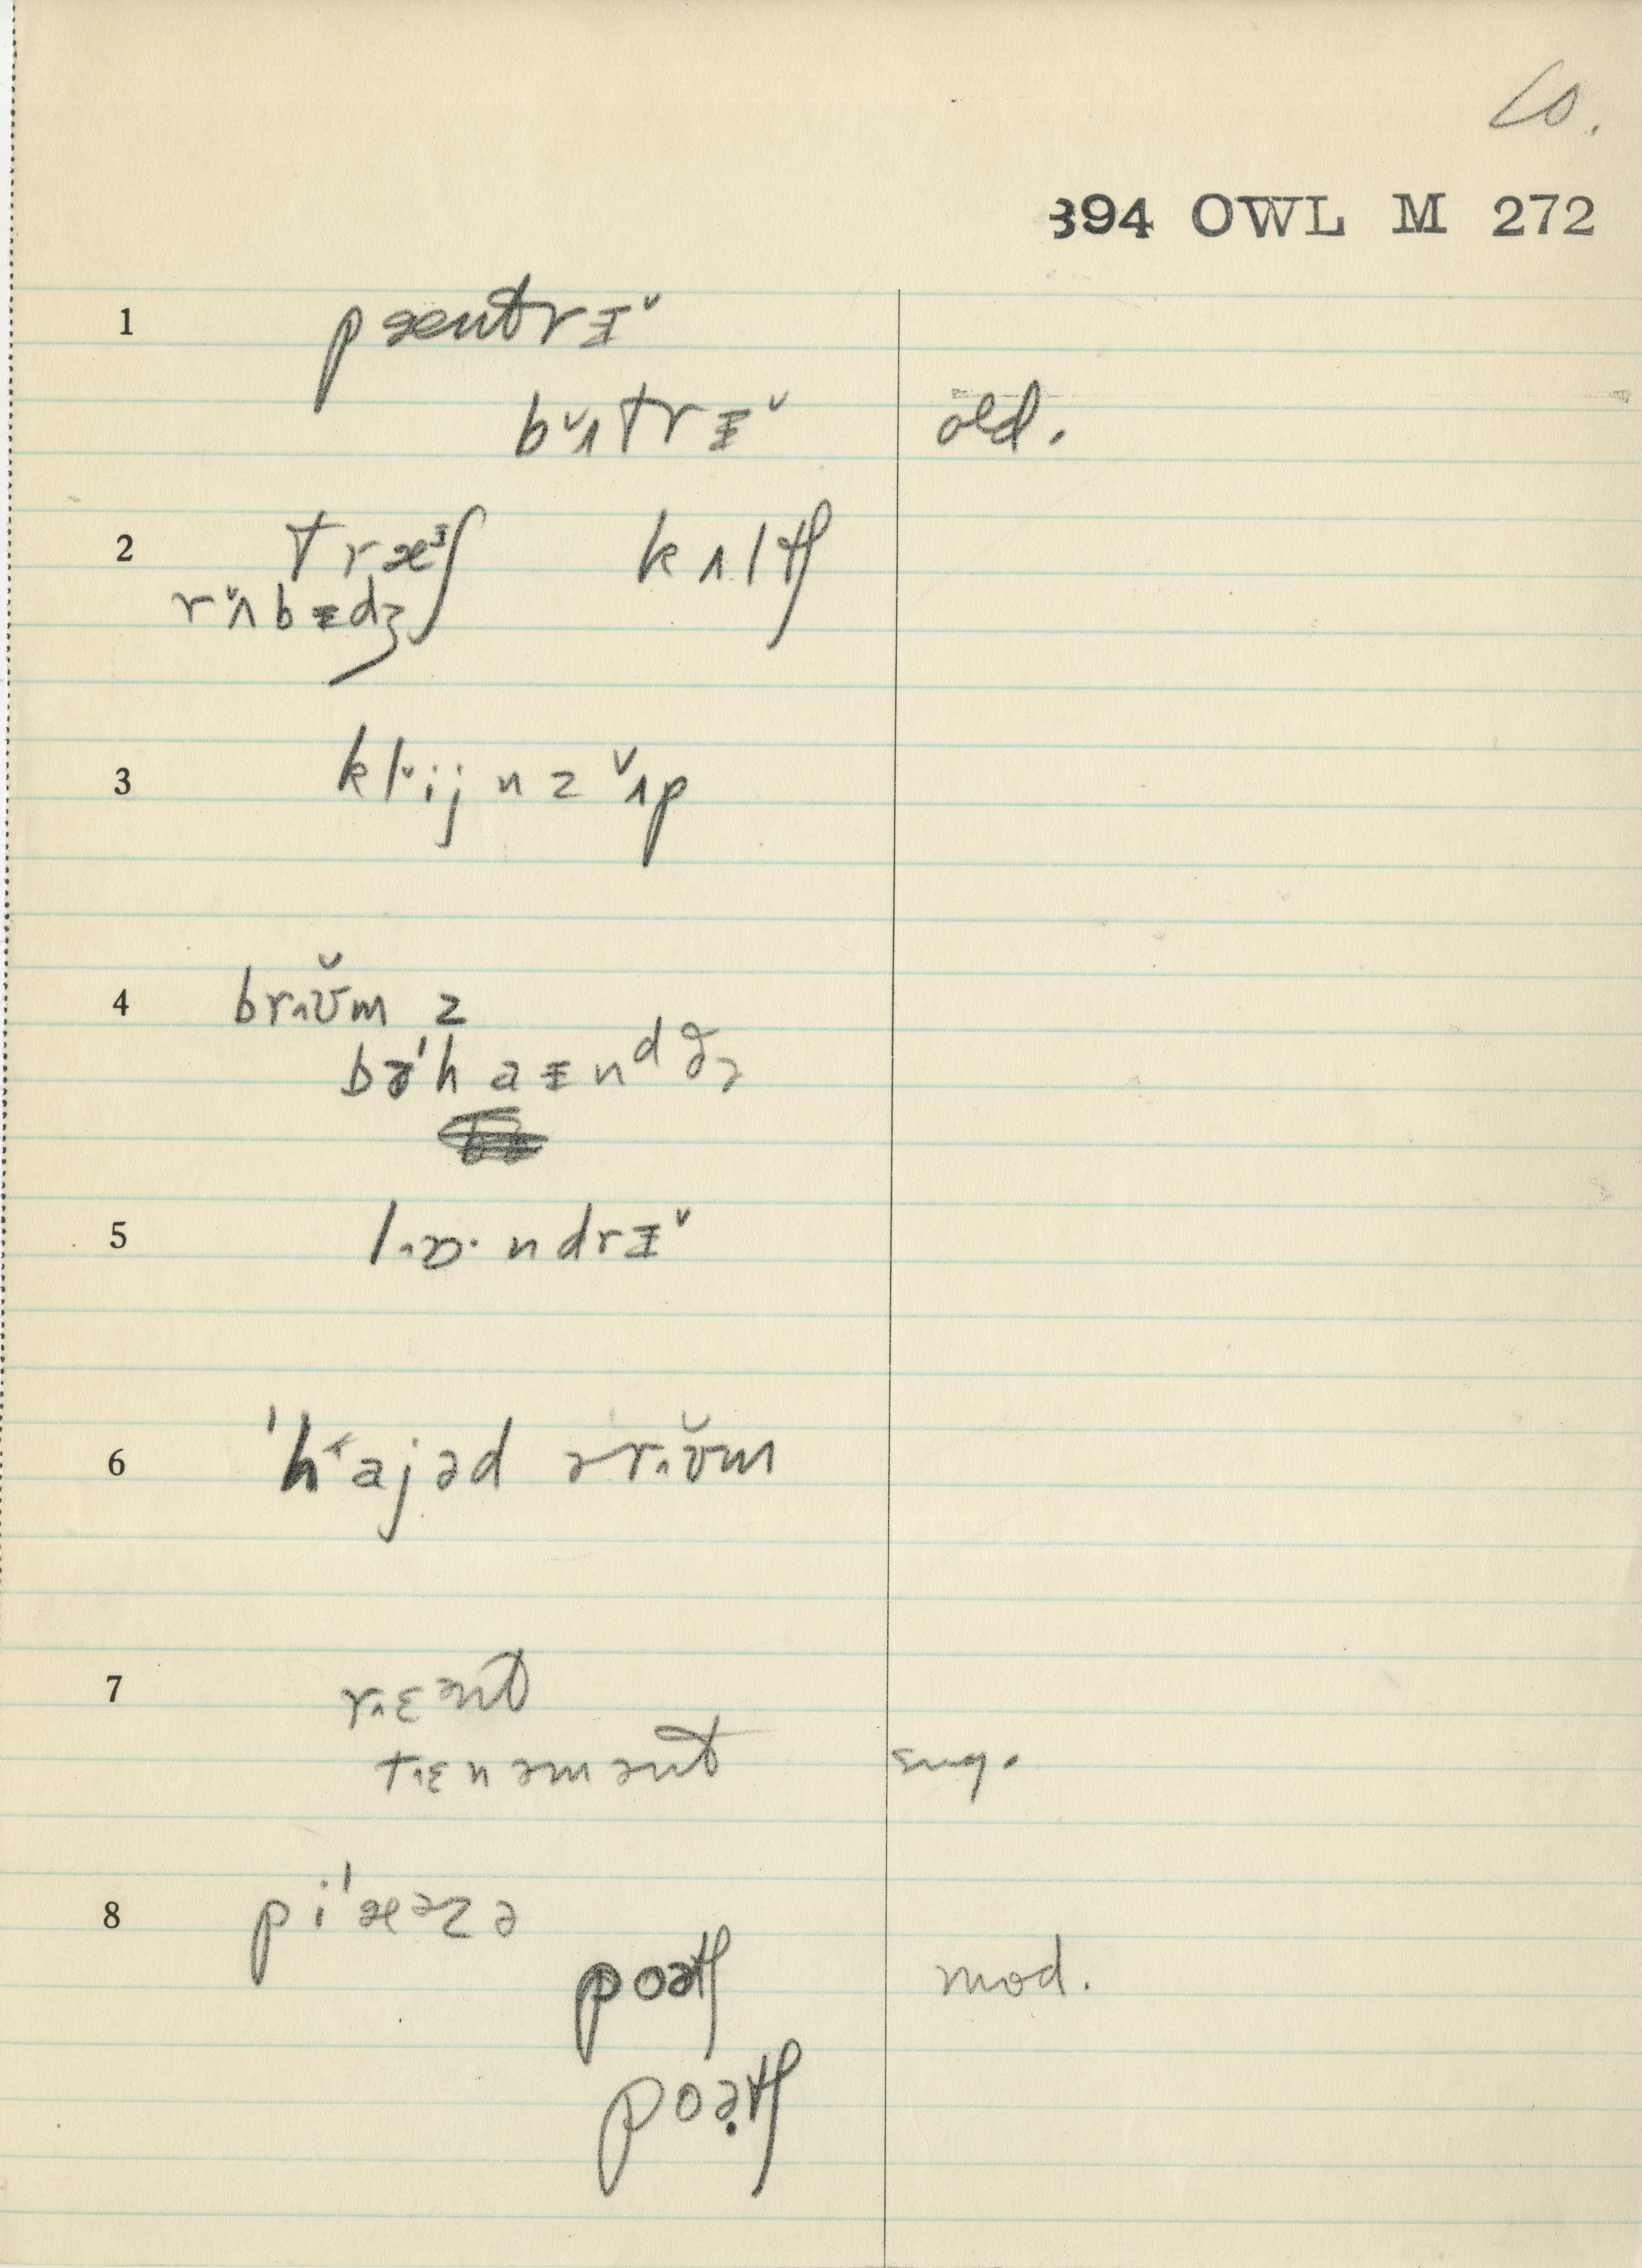 Co.
394 OWL M 272
1 pæntrɪ˅
b˅ʌtrɪ˅ old.
2 træᶾʃ kʌltʃ
r˅ʌbɪdʒ
3 kl˅ijnz ˅ʌp
4 brʌʊ̆m z
bə'haɪnᵈ ðə
5 lɒ·ndrɪ˅
6 'h˂ajəd ərʌʊ̆m
7 rɛᵊnt
tɛnəmənt sug.
8 pi'æᵊzə
poətʃ mod.
poətʃ